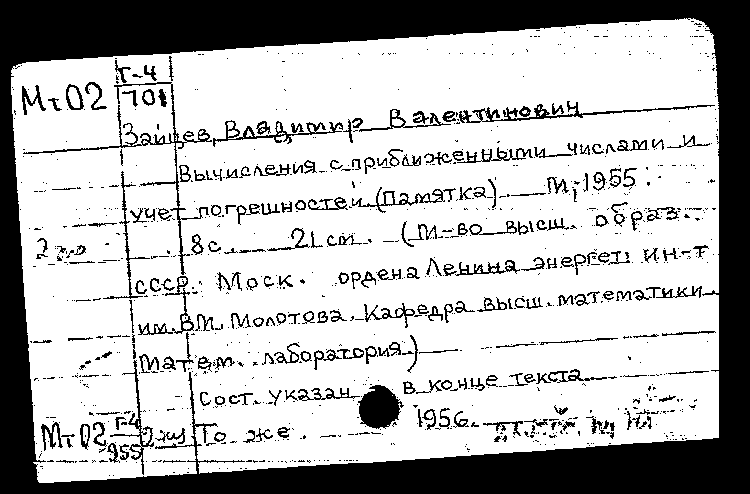 Г-4
Мт02 701
Зайцев, Владимир Валентинович
Вычисления с приближенными числами и
учет погрешностей. (Памятка) М., 1955.
2 экз 8с. 21см. (М-во высш. образ.
СССР. Моск. ордена Ленина энергет. ин-т
им. В.М. Молотова. Кафедра высш. математики.
Матем. лаборатория.)
Сост. указан в конце текста.
Мт02 Г-4/955 2экз То же. 1956.